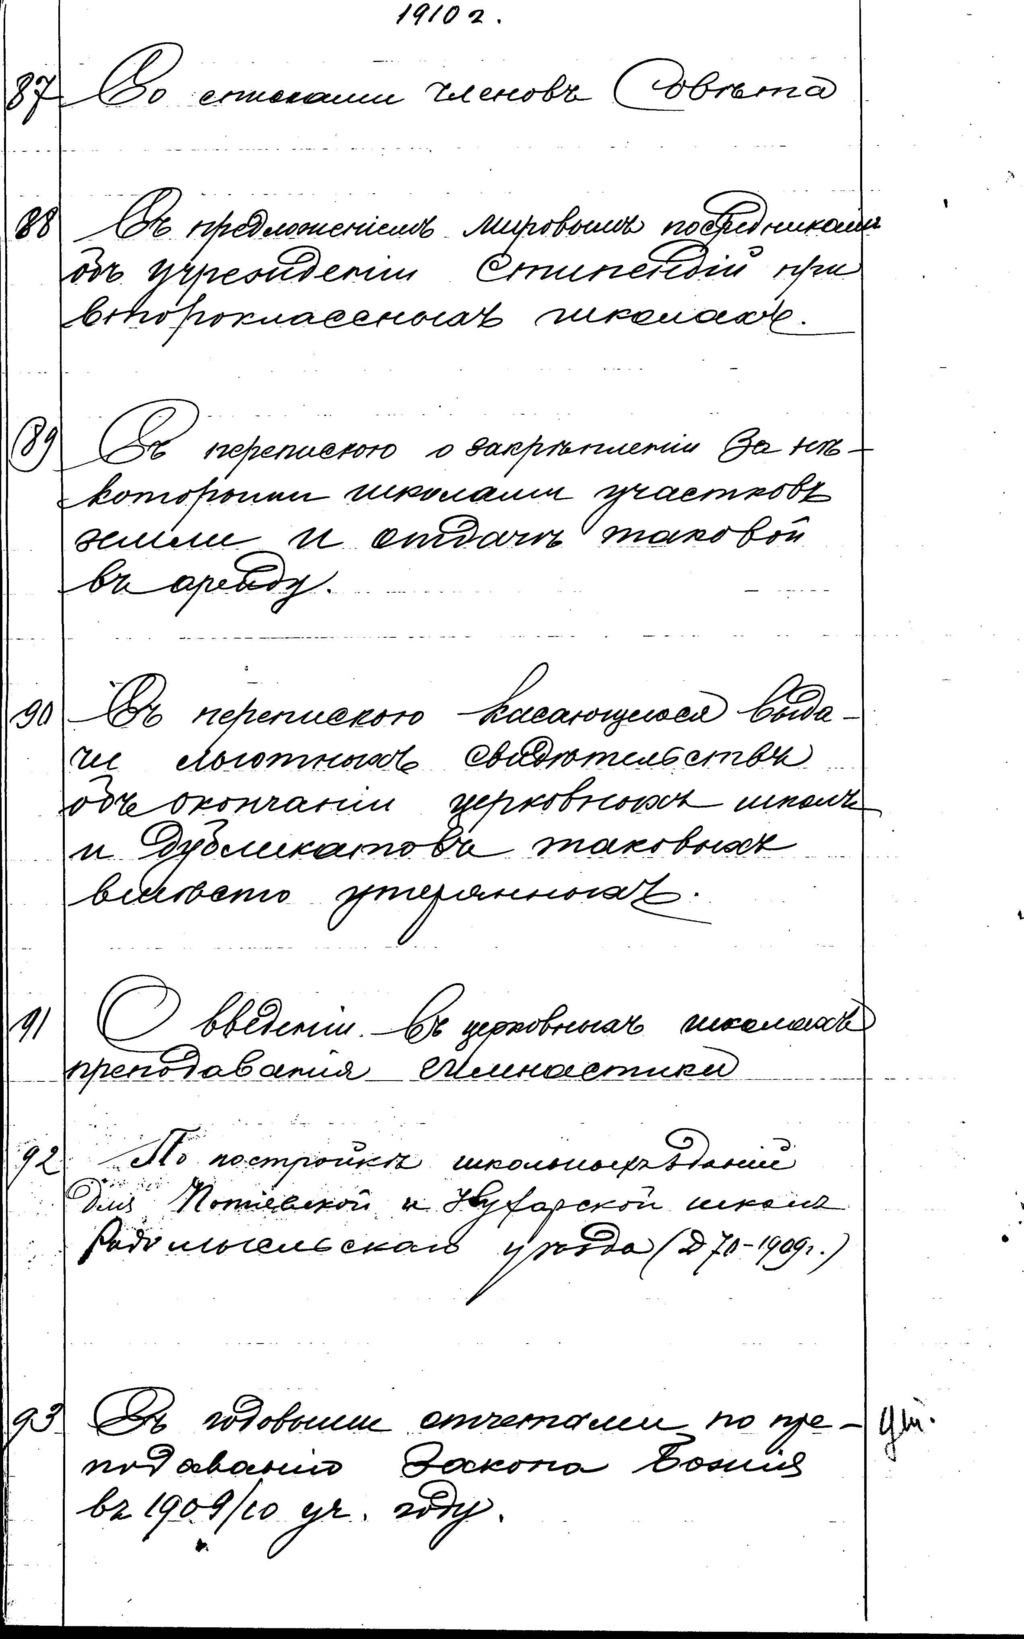 1910 г.
87 Со списками членовъ Совѣта
88 Съ предложеніемъ мировымъ посредникамъ
объ учрежденіи стипендій при
второклассныхъ школахъ.
89 Съ перепискою о закрѣпленіи за нѣ-
которыми школами участковъ
земли и отдачѣ таковой
въ аренду.
90 Съ перепискою касающеюся выда-
чи льготныхъ свидѣтельствъ
объ окончаніи церковныхъ школъ
и дубликатовъ таковыхъ
вмѣсто утерянныхъ.
91 О введеніи въ церковныхъ школахъ
преподаванія гимнастики
92 По постройкѣ школьныхъ зданій
для Потіевской и школъ
Радомысльскаго уѣзда (Д 70-1909г.)
93 Съ годовыми отчетами по пре-
подаванію Закона Божія
въ 1909/10 уч. году.